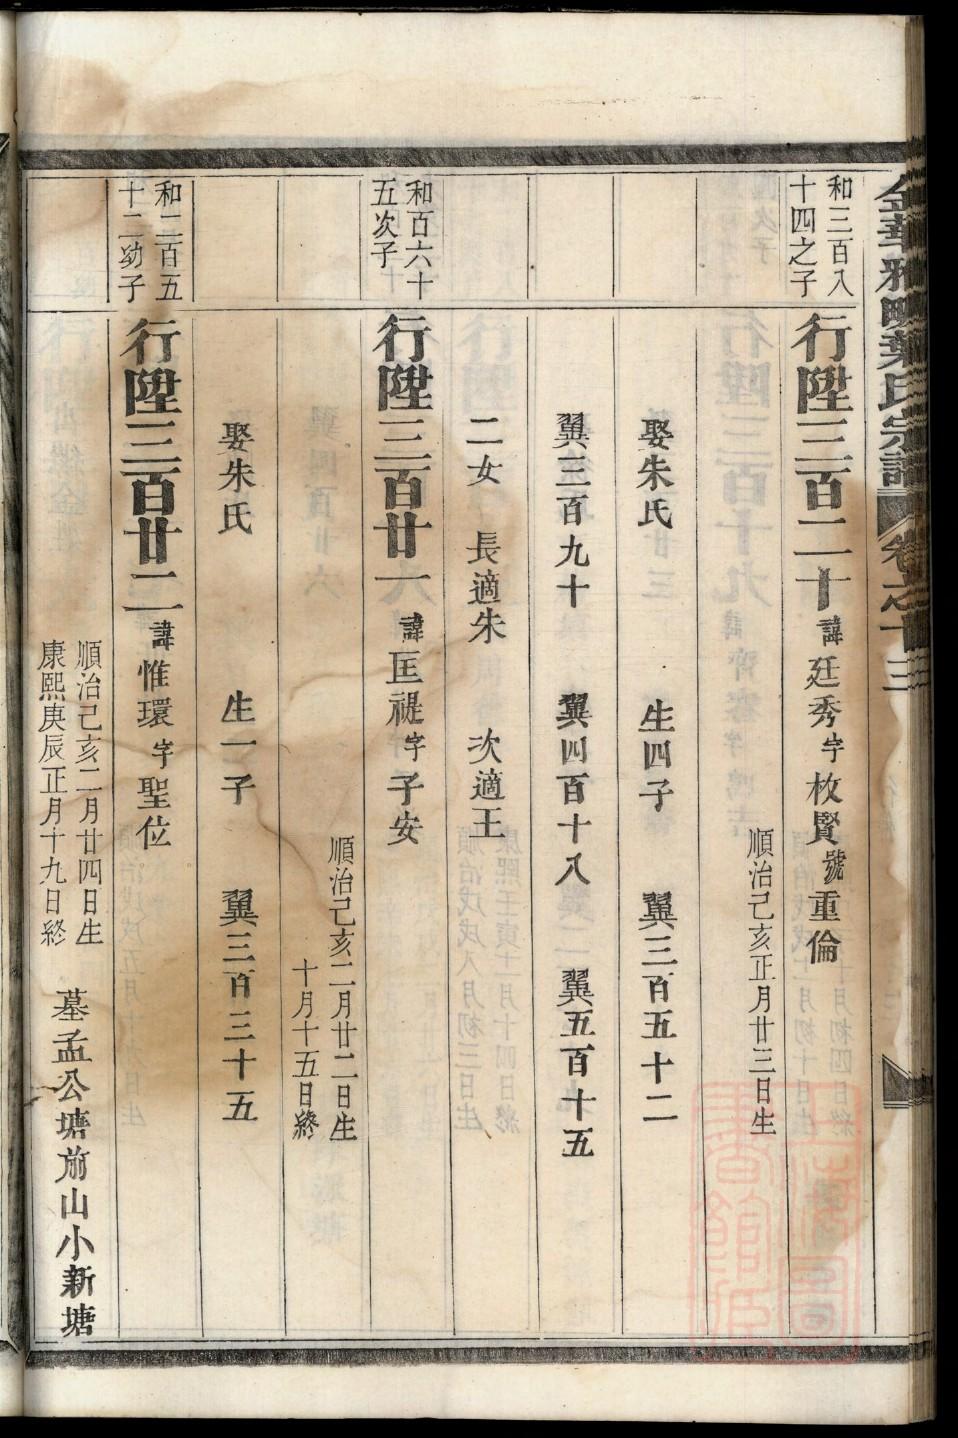 金華雅畈葉氏宗譜 卷之十三
和三百八
十四之子
行陞三百二十 諱廷秀字枚賢號重倫
順治己亥正月廿三日生
娶朱氏 生四子 翼三百五十二
翼三百九十 翼四百十八 翼五百十五
二女 長適朱 次適王
和百六十
五次子
行陞三百廿一 諱匡禔字子安
順治己亥二月廿二日生
十月十五日終
娶朱氏 生一子 翼三百三十五
和二百五
十二幼子
行陞三百廿二 諱惟環字聖位
順治己亥二月廿四日生
康熙庚辰正月十九日終
墓孟公塘前山小新塘